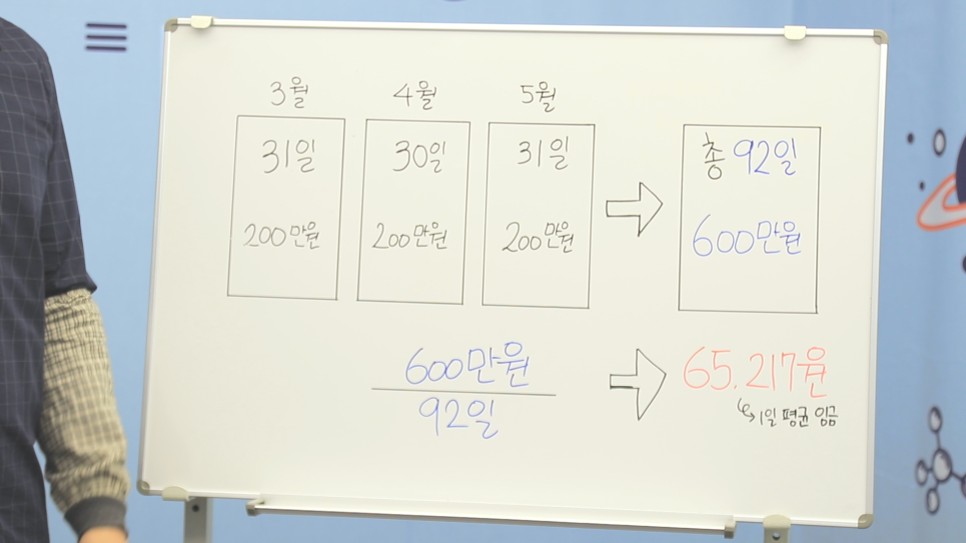 3월 4월 5월
31일 30일 31일 총 92일
200만원 200만원 200만원 600만원
600만원
92일
65.217원
1일 평균 임금